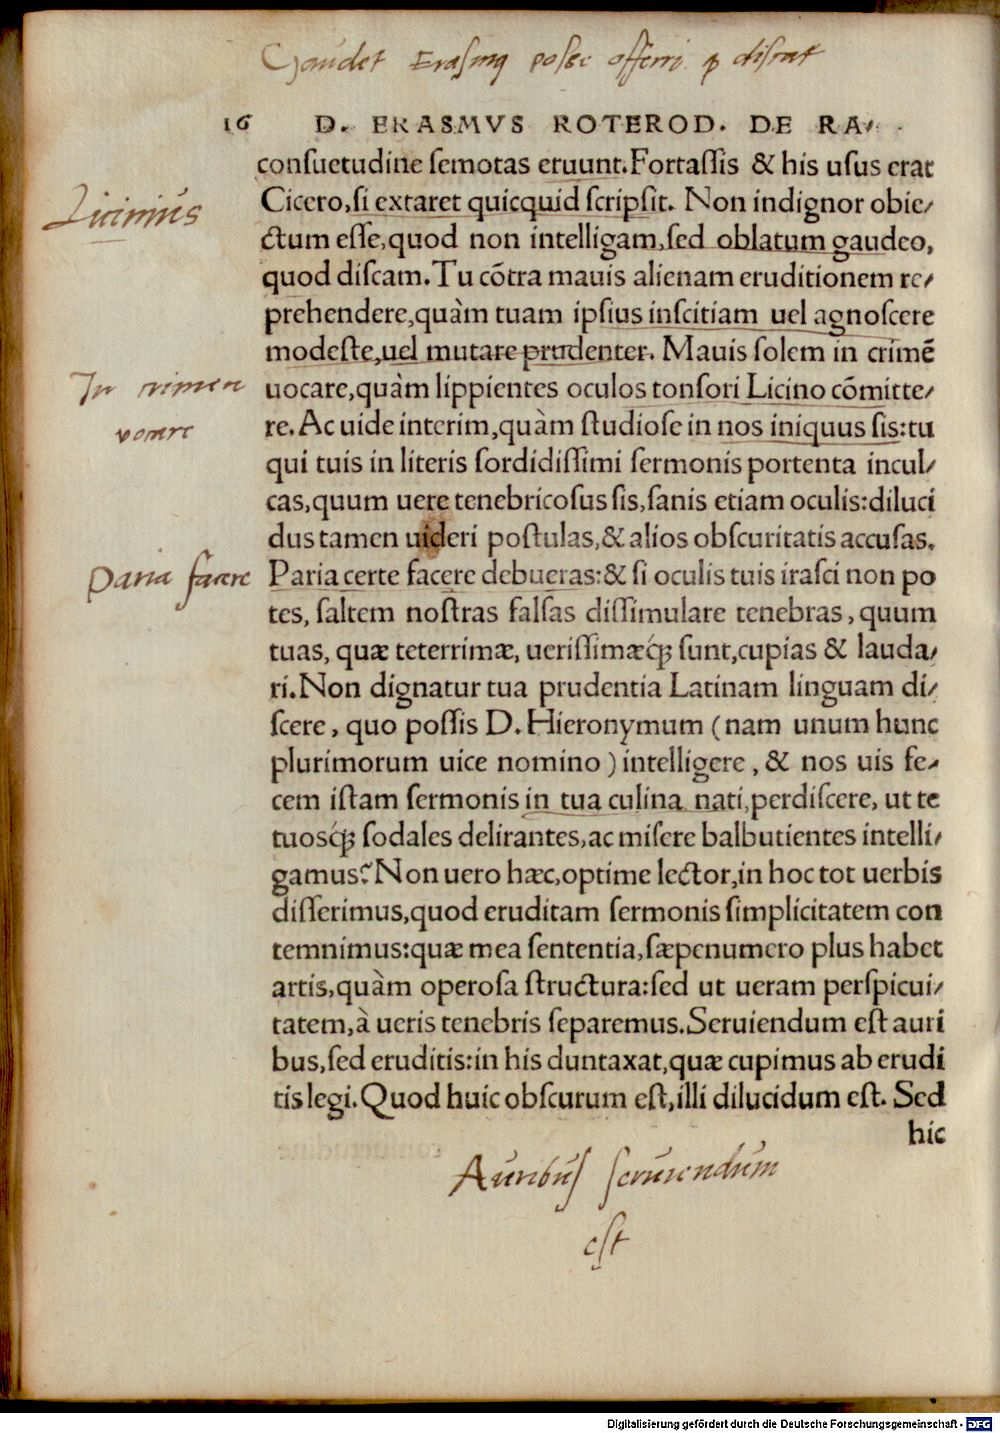 Gaudet Erasmus posse offerri quod discat
16 D. ERASMVS ROTEROD. DE RA⸗
consuetudine semotas eruunt. Fortassis & his usus erat
Cicero, si extaret quicquid scripsit. Non indignor obie⸗
Licinius
ctum esse, quod non intelligam, sed oblatum gaudeo,
quod discam. Tu cōtra mauis alienam eruditionem re⸗
prehendere, quàm tuam ipsius inscitiam uel agnoscere
modeste, uel mutare prudenter. Mauis solem in crimē
In crimen
uocare, quàm lippientes oculos tonsori Licino cōmitte⸗
vocare
re. Ac uide interim, quàm studiose in nos iniquus sis: tu
qui tuis in literis sordidissimi sermonis portenta incul⸗
cas, quum uere tenebricosus sis, sanis etiam oculis: diluci
dus tamen uideri postulas, & alios obscuritatis accusas.
Paria facere
Paria certe facere debueras: & si oculis tuis irasci non po
tes, saltem nostras falsas dissimulare tenebras, quum
tuas, quæ teterrimæ, uerissimæq́ꝫ sunt, cupias & lauda⸗
ri. Non dignatur tua prudentia Latinam linguam di⸗
scere, quo possis D. Hieronymum (nam unum hunc
plurimorum uice nomino) intelligere, & nos uis fe⸗
cem istam sermonis in tua culina nati, perdiscere, ut te
tuosq́ꝫ sodales delirantes, ac misere balbutientes intelli⸗
gamus? Non uero hæc, optime lector, in hoc tot uerbis
disserimus, quod eruditam sermonis simplicitatem con
temnimus: quæ mea sententia, sæpenumero plus habet
artis, quàm operosa structura: sed ut ueram perspicui⸗
tatem, à ueris tenebris separemus. Seruiendum est auri
bus, sed eruditis: in his duntaxat, quæ cupimus ab erudi
tis legi. Quod huic obscurum est, illi dilucidum est. Sed
hic
Auribus seruiendum
est
Digitalisierung gefördert durch die Deutsche Forschungsgemeinschaft - DFG